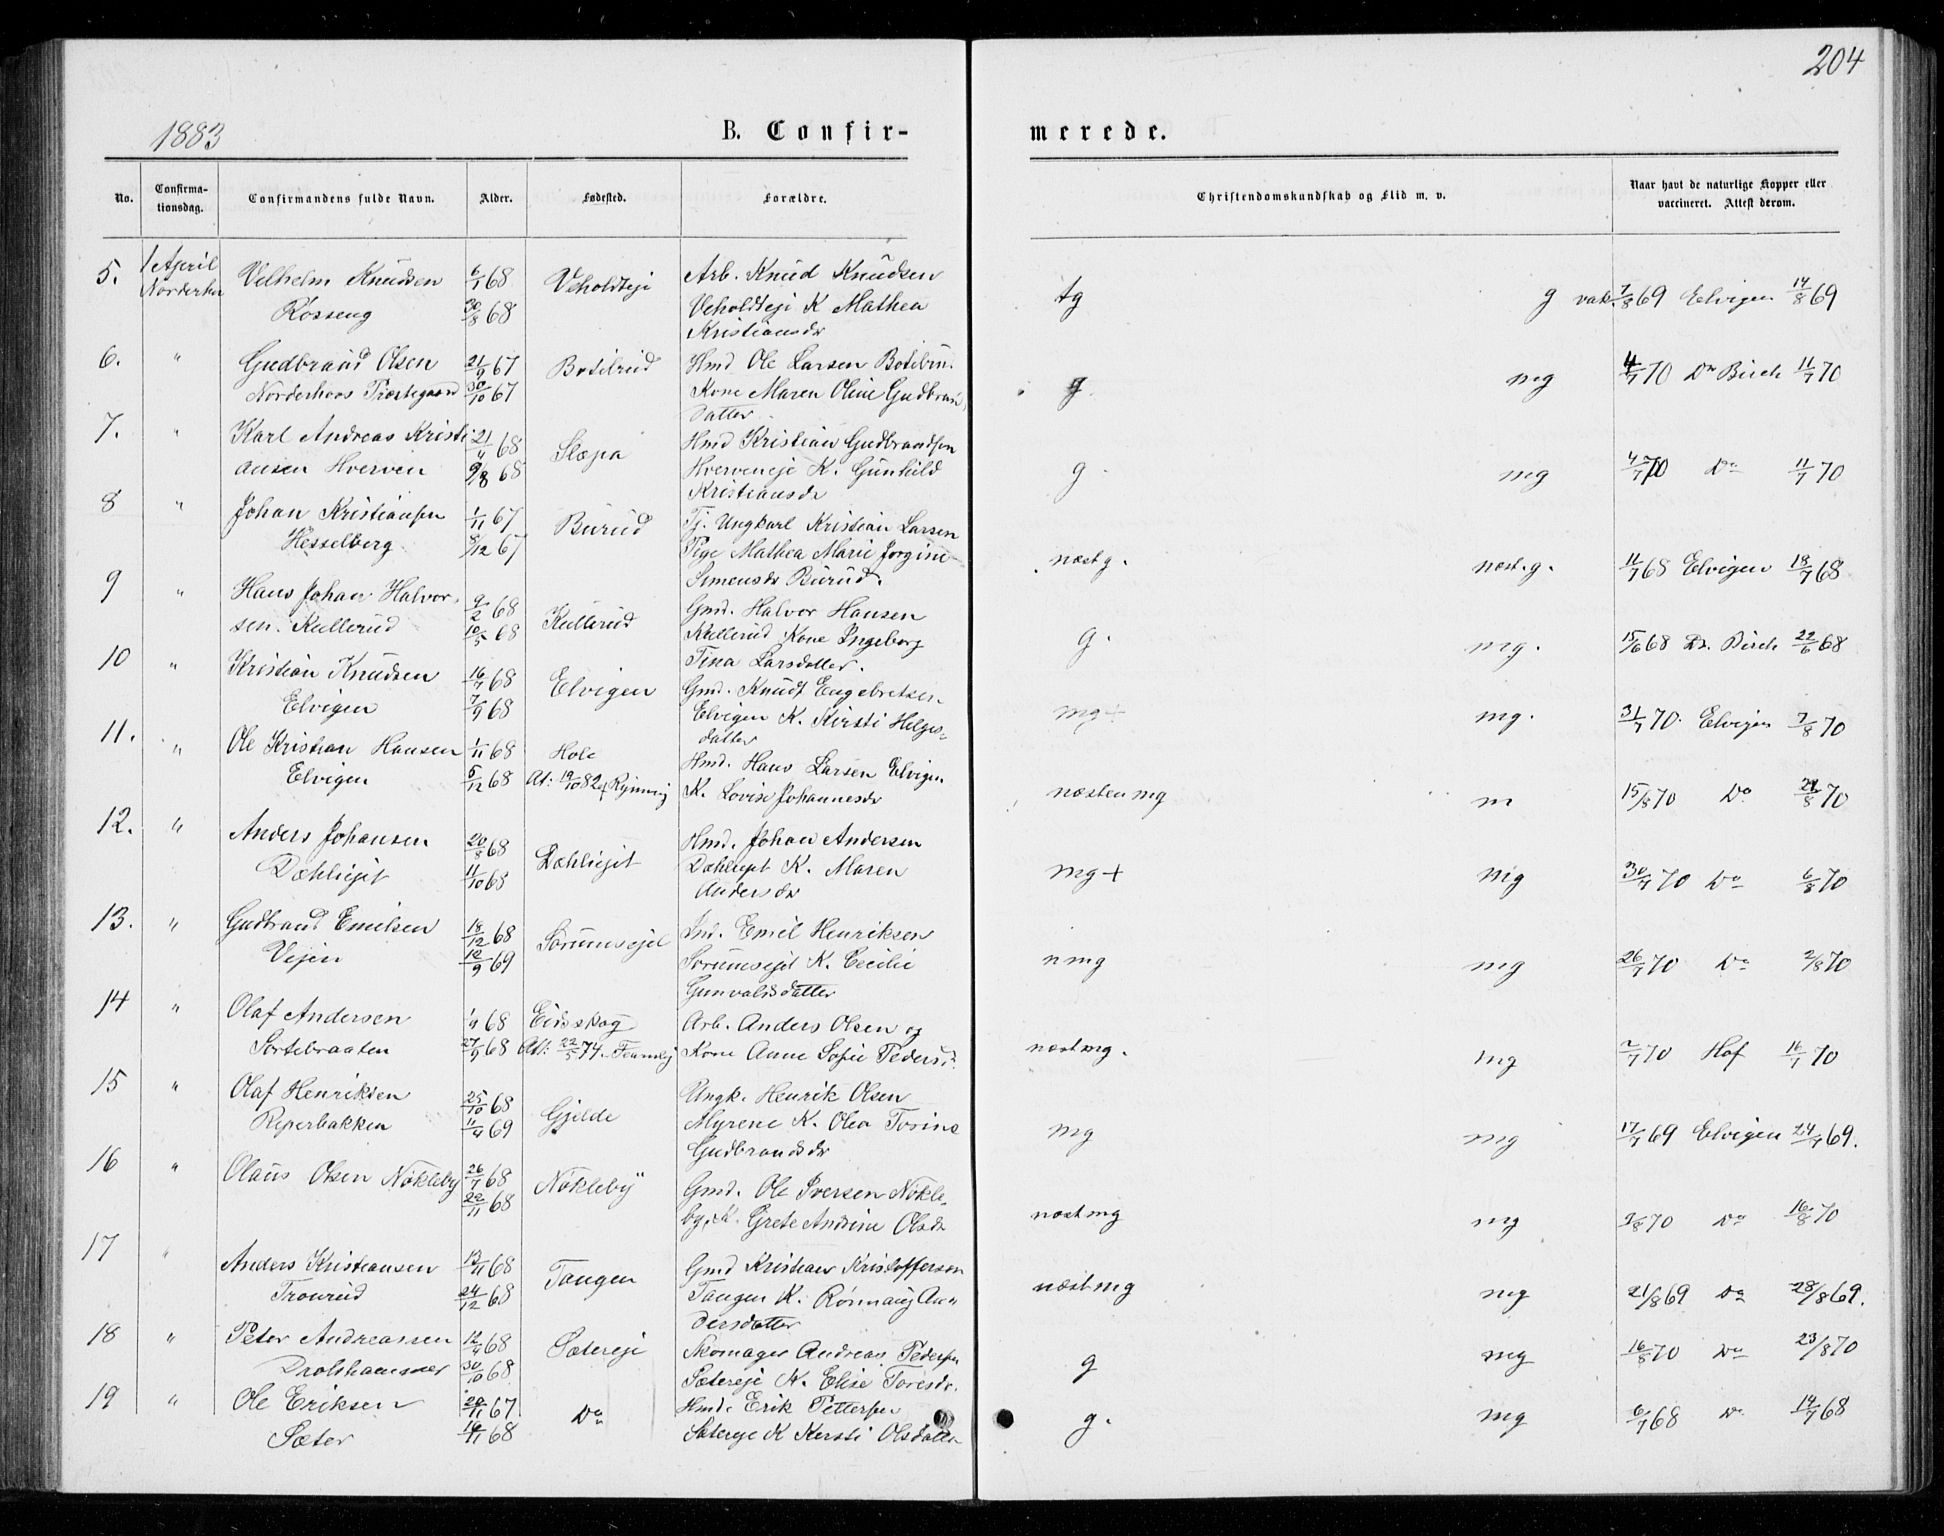 204
1883
B. Confir-
merede.
No.
Confirma-
tionsdag.
Confirmandens fulde Navn.
Alder.
Fødested.
Forældre.
Christendomskundskab og Flid m. v.
Naar havt de naturlige Kopper eller
vaccineret. Attest derom.
5. 1 April Vilhelm Knudsen 6/1 68 Veholdteje Arb. Knud Knudsen tg g vak. 7/8 69 Elvigen 14/8 69
Norderhov Rösseng 30/8 68 Veholdteje K Mathea
Kristiansdr
6. " Gudbrand Olsen 21/9 67 Botilrud Hmd Ole Larsen Botilrud g mg 4/7 70 Dr Birch 11/7 70
Norderhovs Præstegaard 30/10 67 Kone Maren Oline Gudbran
datter
7. " Karl Andreas Kristi 21/4 68 Slæpa Hmd Kristian Gudbrandsen g. mg 4/7 70 Do 11/7 70
ansen Hverven 9/8 68 Hverveneje K. Gunhild
Kristiansdr
8 " Johan Kristiansen 1/11 67 Burud Tj. Ungkarl Kristian Larsen næst g. næst. g. 11/7 68 Elvigen 18/7 68
Hesselberg 8/12 67 Pige Mathea Marie Jorgine
Simensdr Burud.
9 " Hans Johan Halvor- 9/2 68 Kullerud Gmd. Halvor Hansen g. mg. 15/6 68 Dr. Birch 22/6 68
sen. Kullerud 10/5 68 Kullerud Kone Ingeborg
Tina Larsdatter.
10 " Kristian Knudsen 16/7 68 Elvigen Gmd. Knudt Engebretsen mg + mg. 31/7 70. Elvigen 7/8 70
Elvigen 7/9 68 Elvigen K. Kirsti Helges-
datter
11. " Ole Kristian Hansen 1/11 68 Hole Hmd. Hans Larsen Elvigen næsten mg m 15/8 70 Do 21/8 70
Elvigen 6/12 68 At: 19/10 82 K. Lovise Johannesdr
12. " Anders Johansen 20/8 68 Dæhliejet Hmd. Johan Andersen mg + mg 30/7 70 Do 6/8 70
Dæhliejet 11/10 68 Dæhliejet K. Maren
Andersdr
13. " Gudbrand Emilsen 18/12 68 Sørumsejet Ind. Emil Henriksen n mg mg 26/7 70 Do 2/8 70
Vejen 12/9 69 Sørumsejet K. Cecilie
Gunvaldsdatter
14 " Olaf Andersen 1/9 68 Eidsskog Arb. Anders Olsen og næst mg. mg 2/7 70 Hof 16/7 70
Sortebraaten 27/9 68 At: 22/5 74. Kone Anne Sofie Pedersd.
15 " Olaf Henriksen 25/10 68 Gjelde Ungk. Henrik Olsen mg mg 17/7 69 Elvigen 24/7 69.
Reperbakken 11/4 69 Myrene K. Olea Torine
Gudbrandsdr
16 " Olaus Olsen Nökleby 26/7 68 Nökleby Gmd. Ole Iversen Nökle- næst mg mg 9/8 70 Do 16/8 70
22/11 68 by, K. Grete Andrine Olsdr
17 " Anders Kristiansen 13/11 68 Tangen Gmd Kristian Kristofferson næst mg mg 21/8 69 Do 28/8 69.
Tronrud 24/12 68 Tangen K. Rönnaug An-
dersdatter
18 " Peter Andreassen 12/9 68 Sætereje Skomager Andreas Pedersen g mg 16/8 70 Do 23/8 70
Drolshammer 30/10 68 Sætereje K. Elise Toresdr.
19 " Ole Eriksen 20/11 67 Do Hmd. Erik Pettersen g. mg 6/7 68 Do 14/7 68
Sæter 19/1 68 Sætereje K Kersti Olsdatter